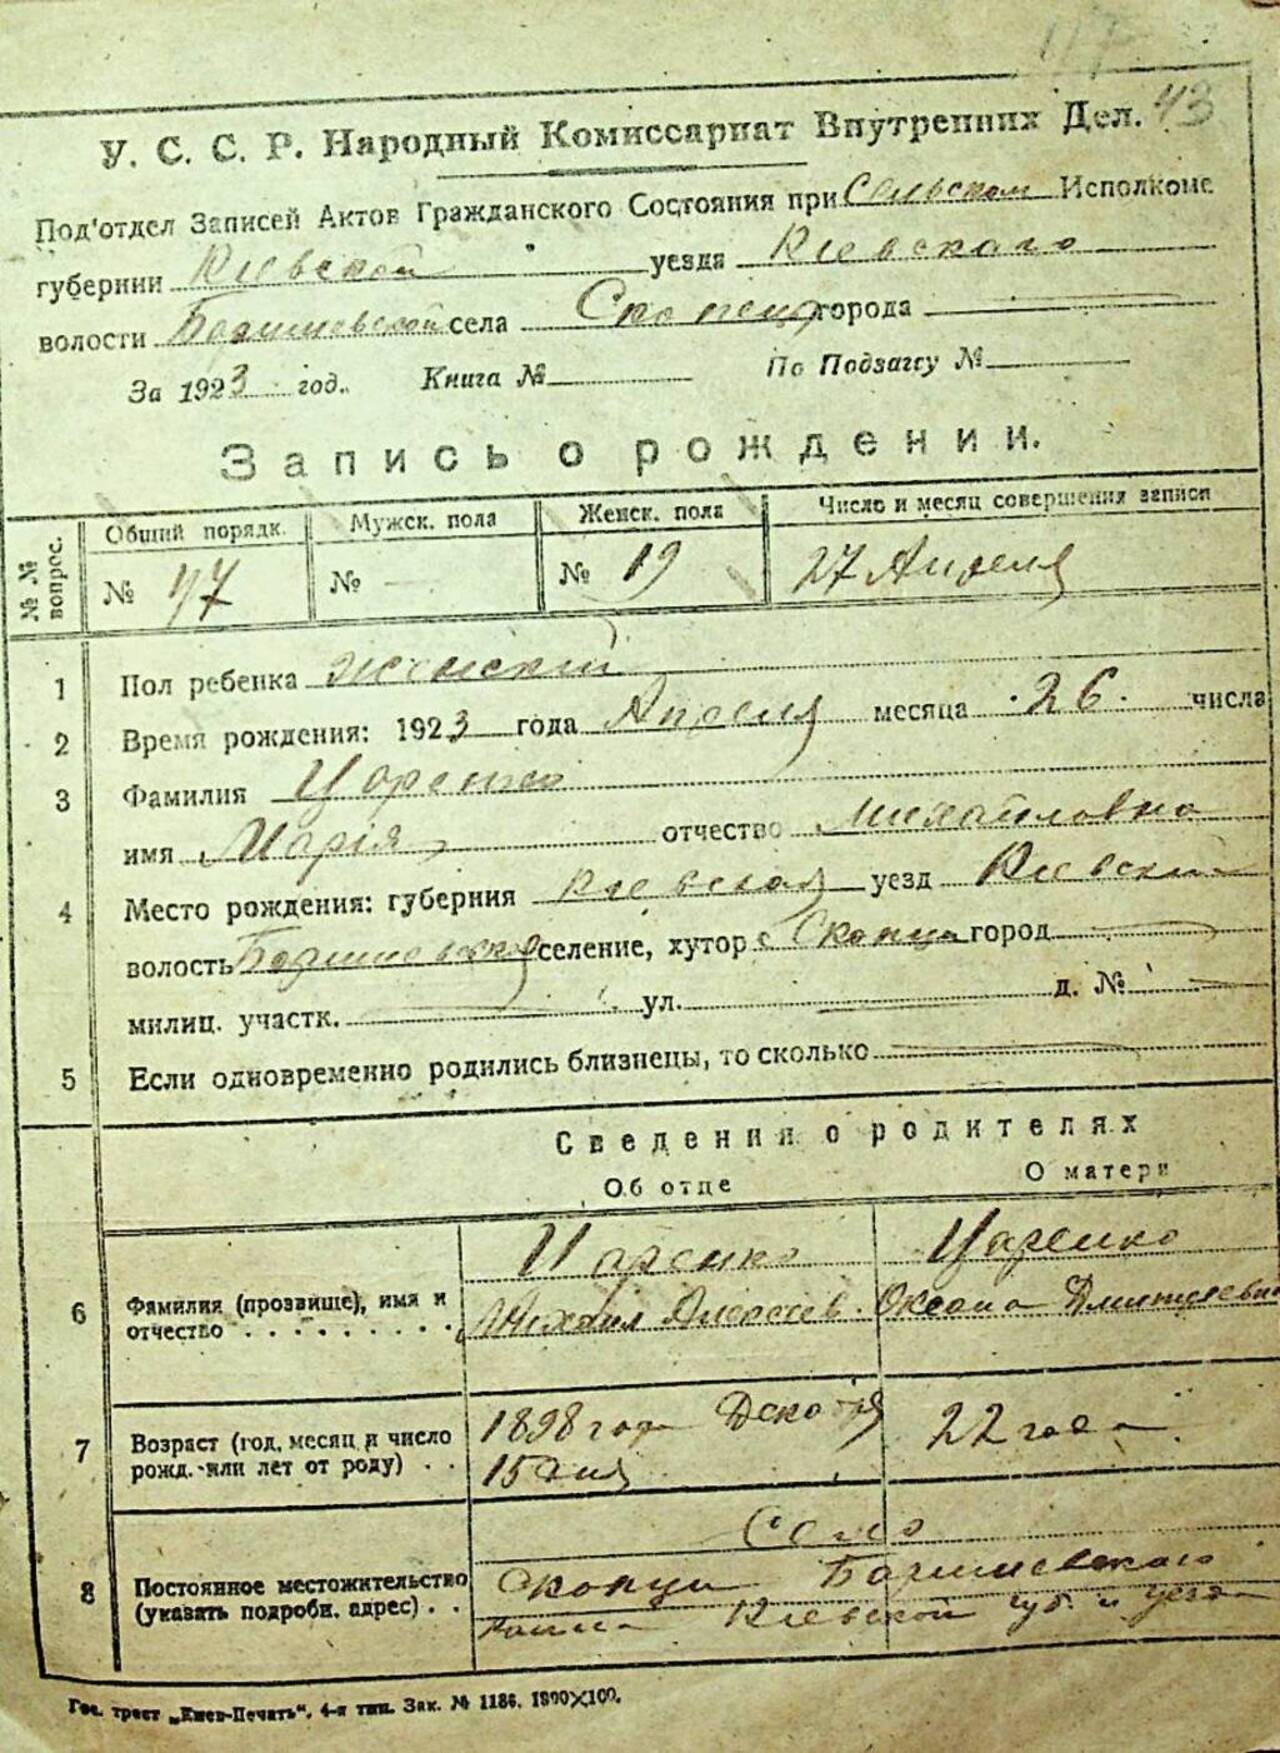 43
У. С. С. Р. Народный Комиссариат Внутренних Дел.
Под'отдел Записей Актов Гражданского Состояния при Сельском Исполкоме
губернии Киевской уезда Киевского
волости села города
За 1923 год. Книга № По Подзагсу №
Запись о рождении.
№ № вопрос. Общий порядк. Мужск. пола Женск. пола Число и месяц совершения записи
№ 47 № — № 19 27 Апреля
1 Пол ребенка женский
2 Время рождения: 1923 года Апреля месяца 26. числа
3 Фамилия Царенко
имя Марія отчество Михайловна
4 Место рождения: губерния Киевская уезд Киевский
волость селение, хутор с Скопци город
милиц. участк. ул. д. №
5 Если одновременно родились близнецы, то сколько
Сведения о родителях
Об отце О матери
Царенко Царенко
6 Фамилия (прозвище), имя и отчество . . . . . . . . . Михаил Алексеев. Оксана Дмитриевна
7 Возраст (год, месяц и число рожд. или лет от роду) . . 1898 года Декабря 15 дня 22 года.
Село
8 Постоянное местожительство (указать подробн. адрес) . . Скопци
Киевской губ. и уезда
Гос. трест „Киев-Печать“, 4-я тип. Зак. № 1186. 1800×100.